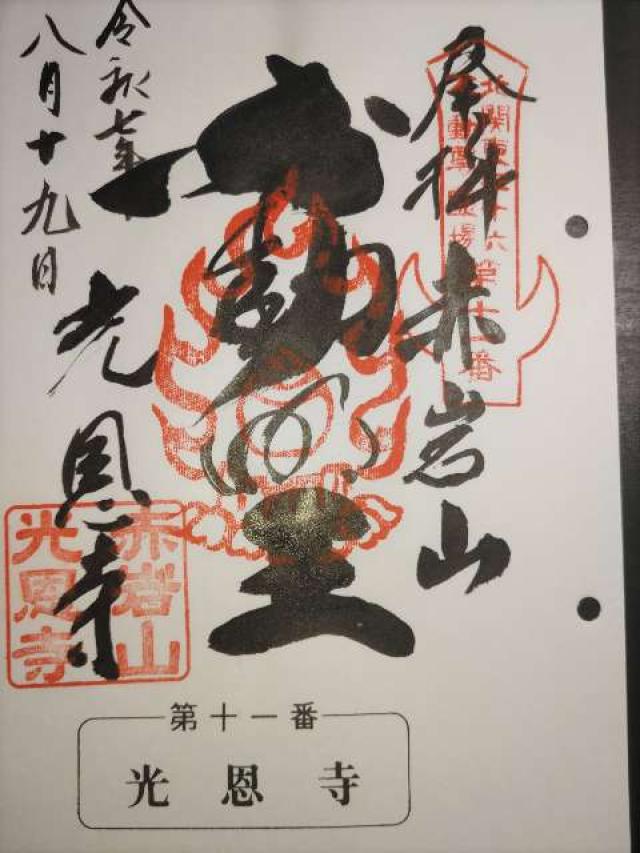 奉拝 赤岩山
北関東三十六
不動尊霊場
第十一番
不動明王
令和七年
八月十九日
光恩寺
赤岩山
光恩寺
第十一番
光恩寺